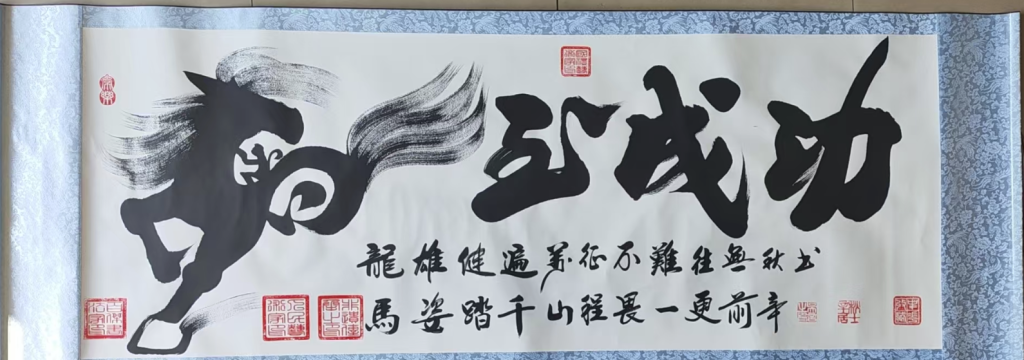 马到成功
龍馬雄姿健踏遍千萬山征程不畏難一往更無前秋辛书